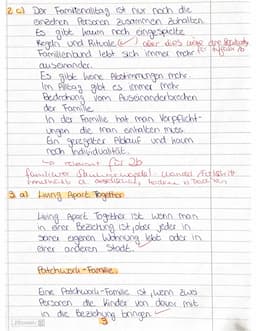 2 c) Der Familienalltag ist nur noch die
einzelnen Personen zusammen zuhalten.
Es gibt kaum noch eingespielte
Regeln und Rituale (✓) aber dies wäre eine
Familienband lebt sich immer mehr
auseinander.
Es gibt keine Abstimmungen mehr.
Im Alltag gibt es immer mehr
Bedrohung vom Auseinanderbrechen
der Familie.
In der Familie hat man Verpflicht-
ungen die man einhalten muss.
Ein geregelter Ablauf und kaum
noch Individualität.
→ relevant für 2b
familiärer Strukturwandel
3. a) Living Apart Together
Living Apart Together ist wenn man
in einer Beziehung ist, aber jeder in
seiner eigenen Wohnung lebt oder in
einer anderen Stadt.
Patchwork-Familie
Eine Patchwork-Familie ist, wenn zwei
Personen die Kinder von davor mit
in die Beziehung bringen.
3